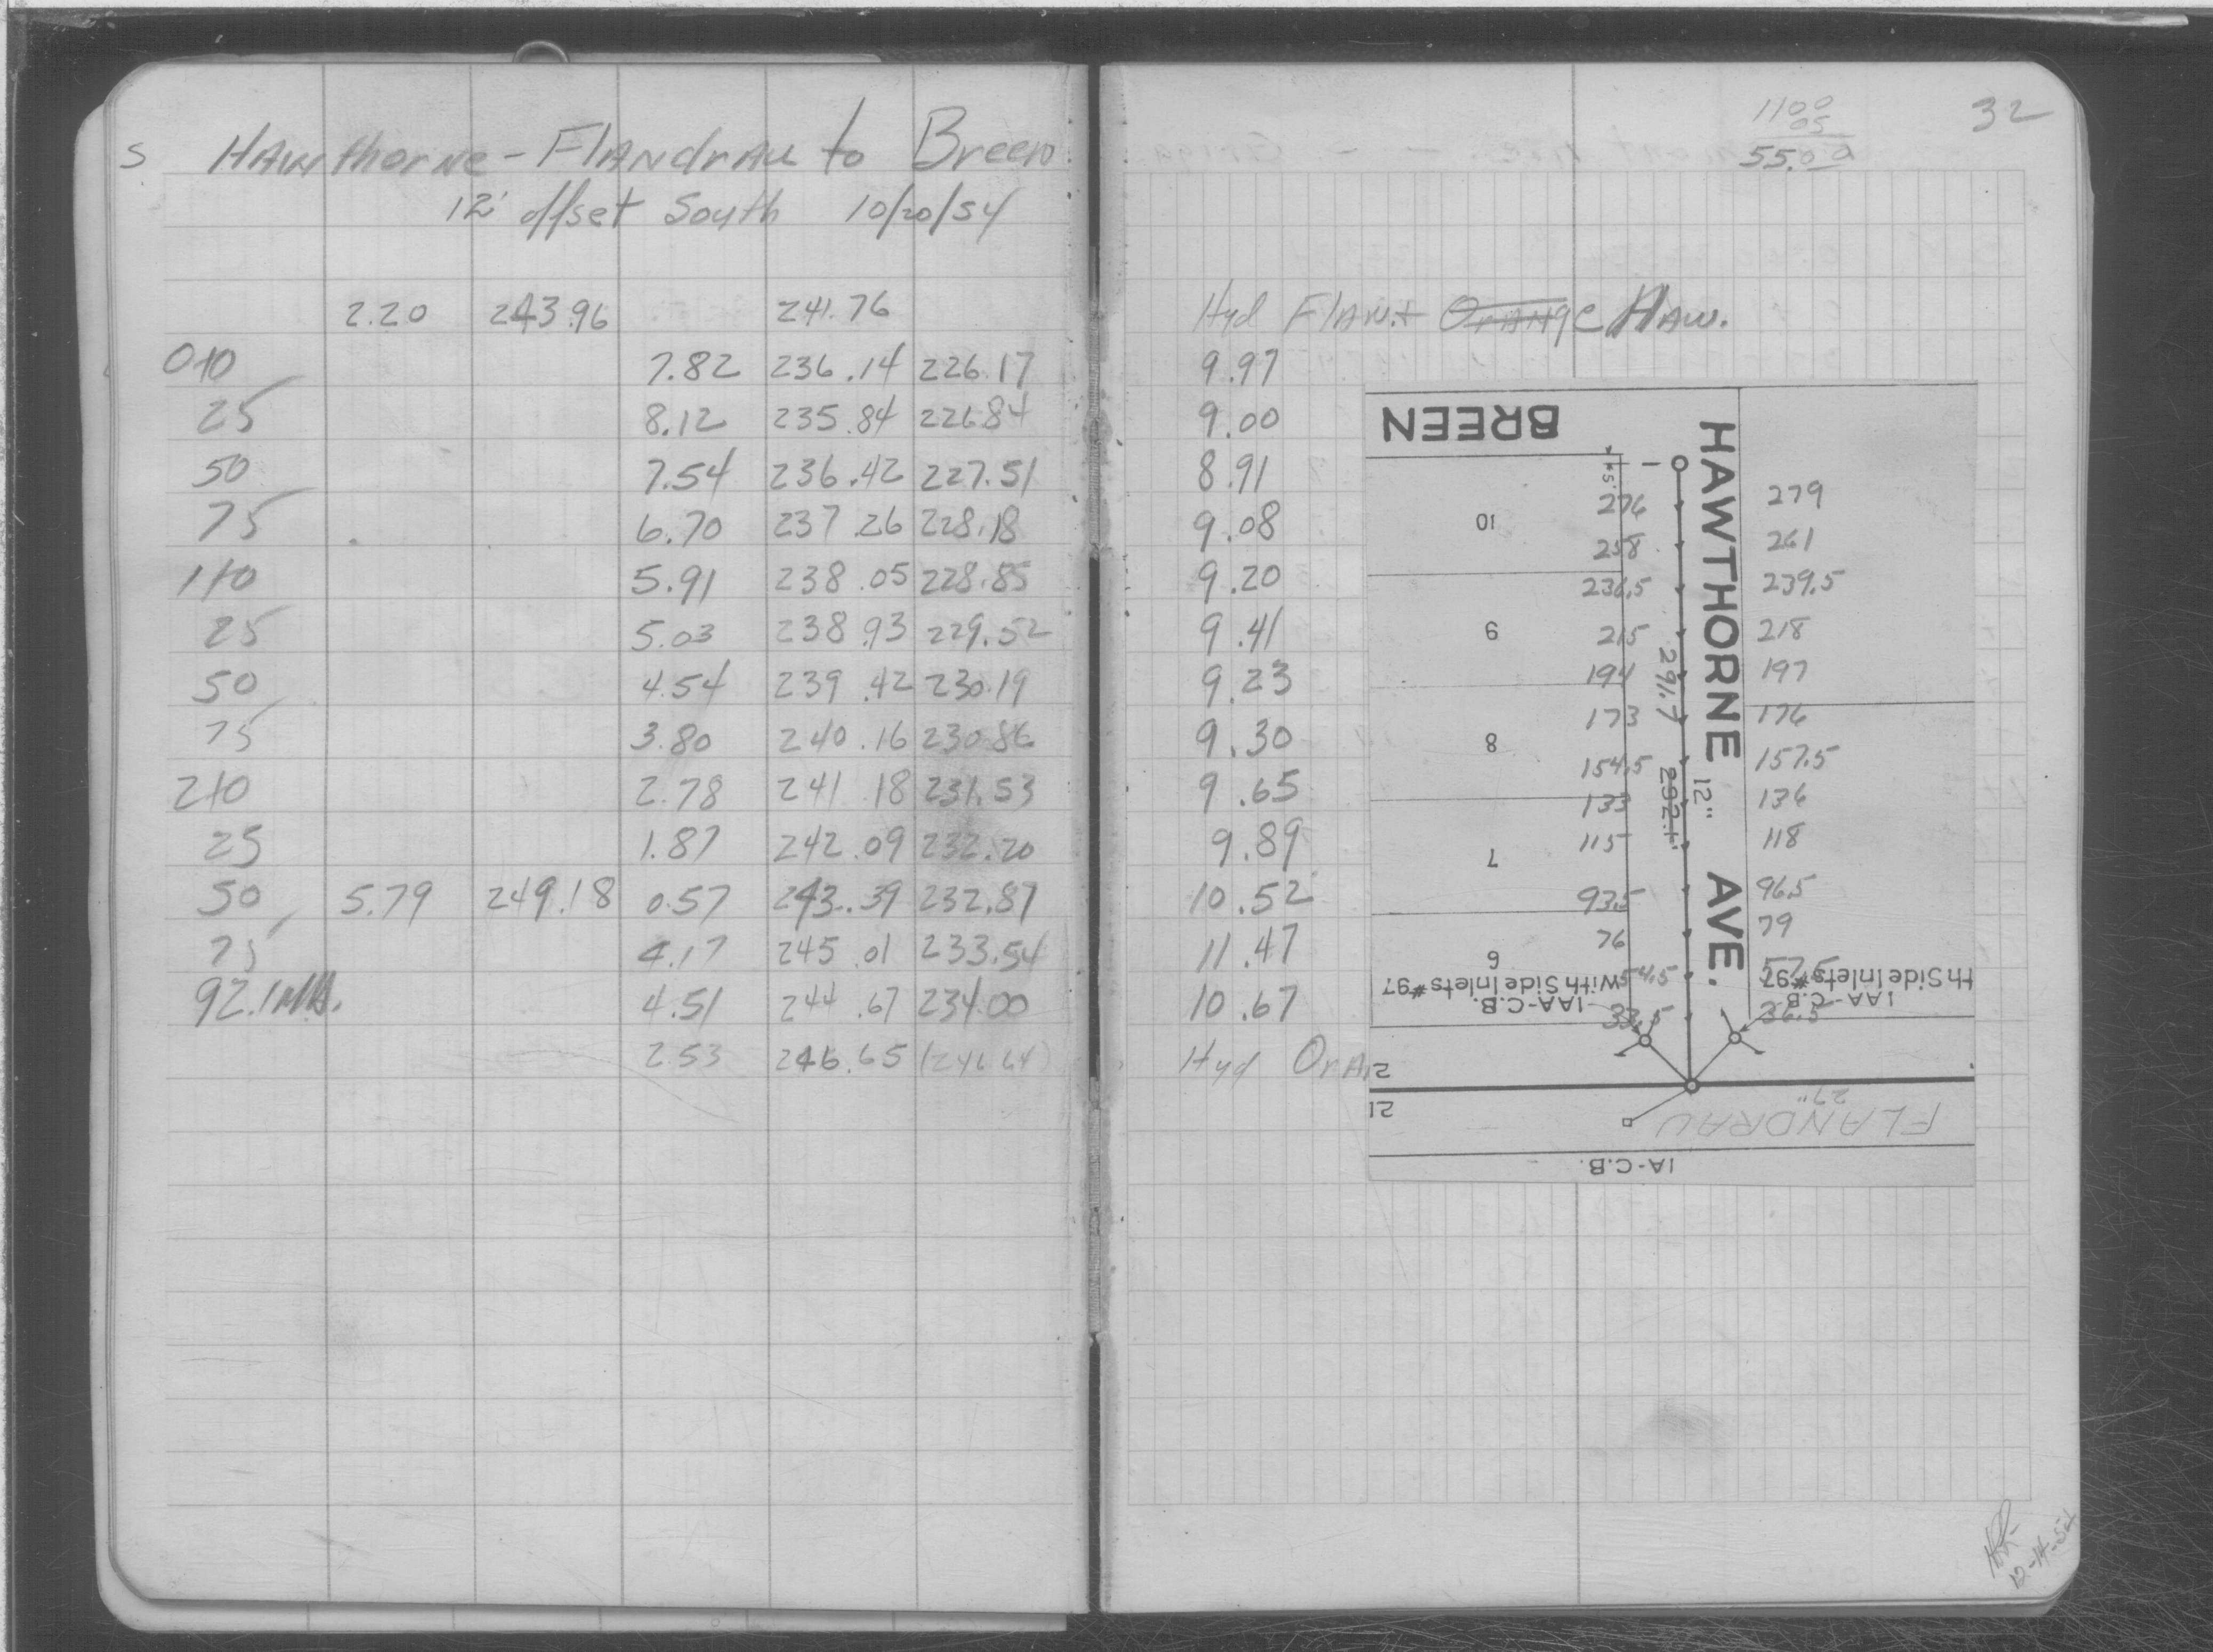 S Hawthorne - Flandrau to Breen
12' offset South 10/20/54
2.20 243.96 241.76
0+0 7.82 236.14 226.17
25 8.12 235.84 226.84
50 7.54 236.42 227.51
75 6.70 237.26 228.18
1+0 5.91 238.05 228.85
25 5.03 238.93 229.52
50 4.54 239.42 230.19
75 3.80 240.16 230.86
2+0 2.78 241.18 231.53
25 1.87 242.09 232.20
50 5.79 249.18 0.57 243.39 232.87
75 4.17 245.01 233.54
92.1 M.H. 4.51 244.67 234.00
2.53 246.65 (246.64)
32
1100
05
55.00
Hyd Flan. + Orange Haw.
9.97
9.00
8.91
9.08
9.20
9.41
9.23
9.30
9.65
9.89
10.52
11.47
10.67
Hyd Ora
BREEN
HAWTHORNE 12" AVE.
5'
10
9
8
7
6
276 279
258 261
236.5 239.5
215 218
194 197
173 176
154.5 157.5
133 136
115 118
93.5 96.5
76 79
54.5 57.5
33.5 36.5
291.7
292±
IAA-C.B.
With Side Inlets #97
IAA-C.B.
th Side Inlets #97
2
21
27"
FLANDRAU
IA-C.B.
12-14-54